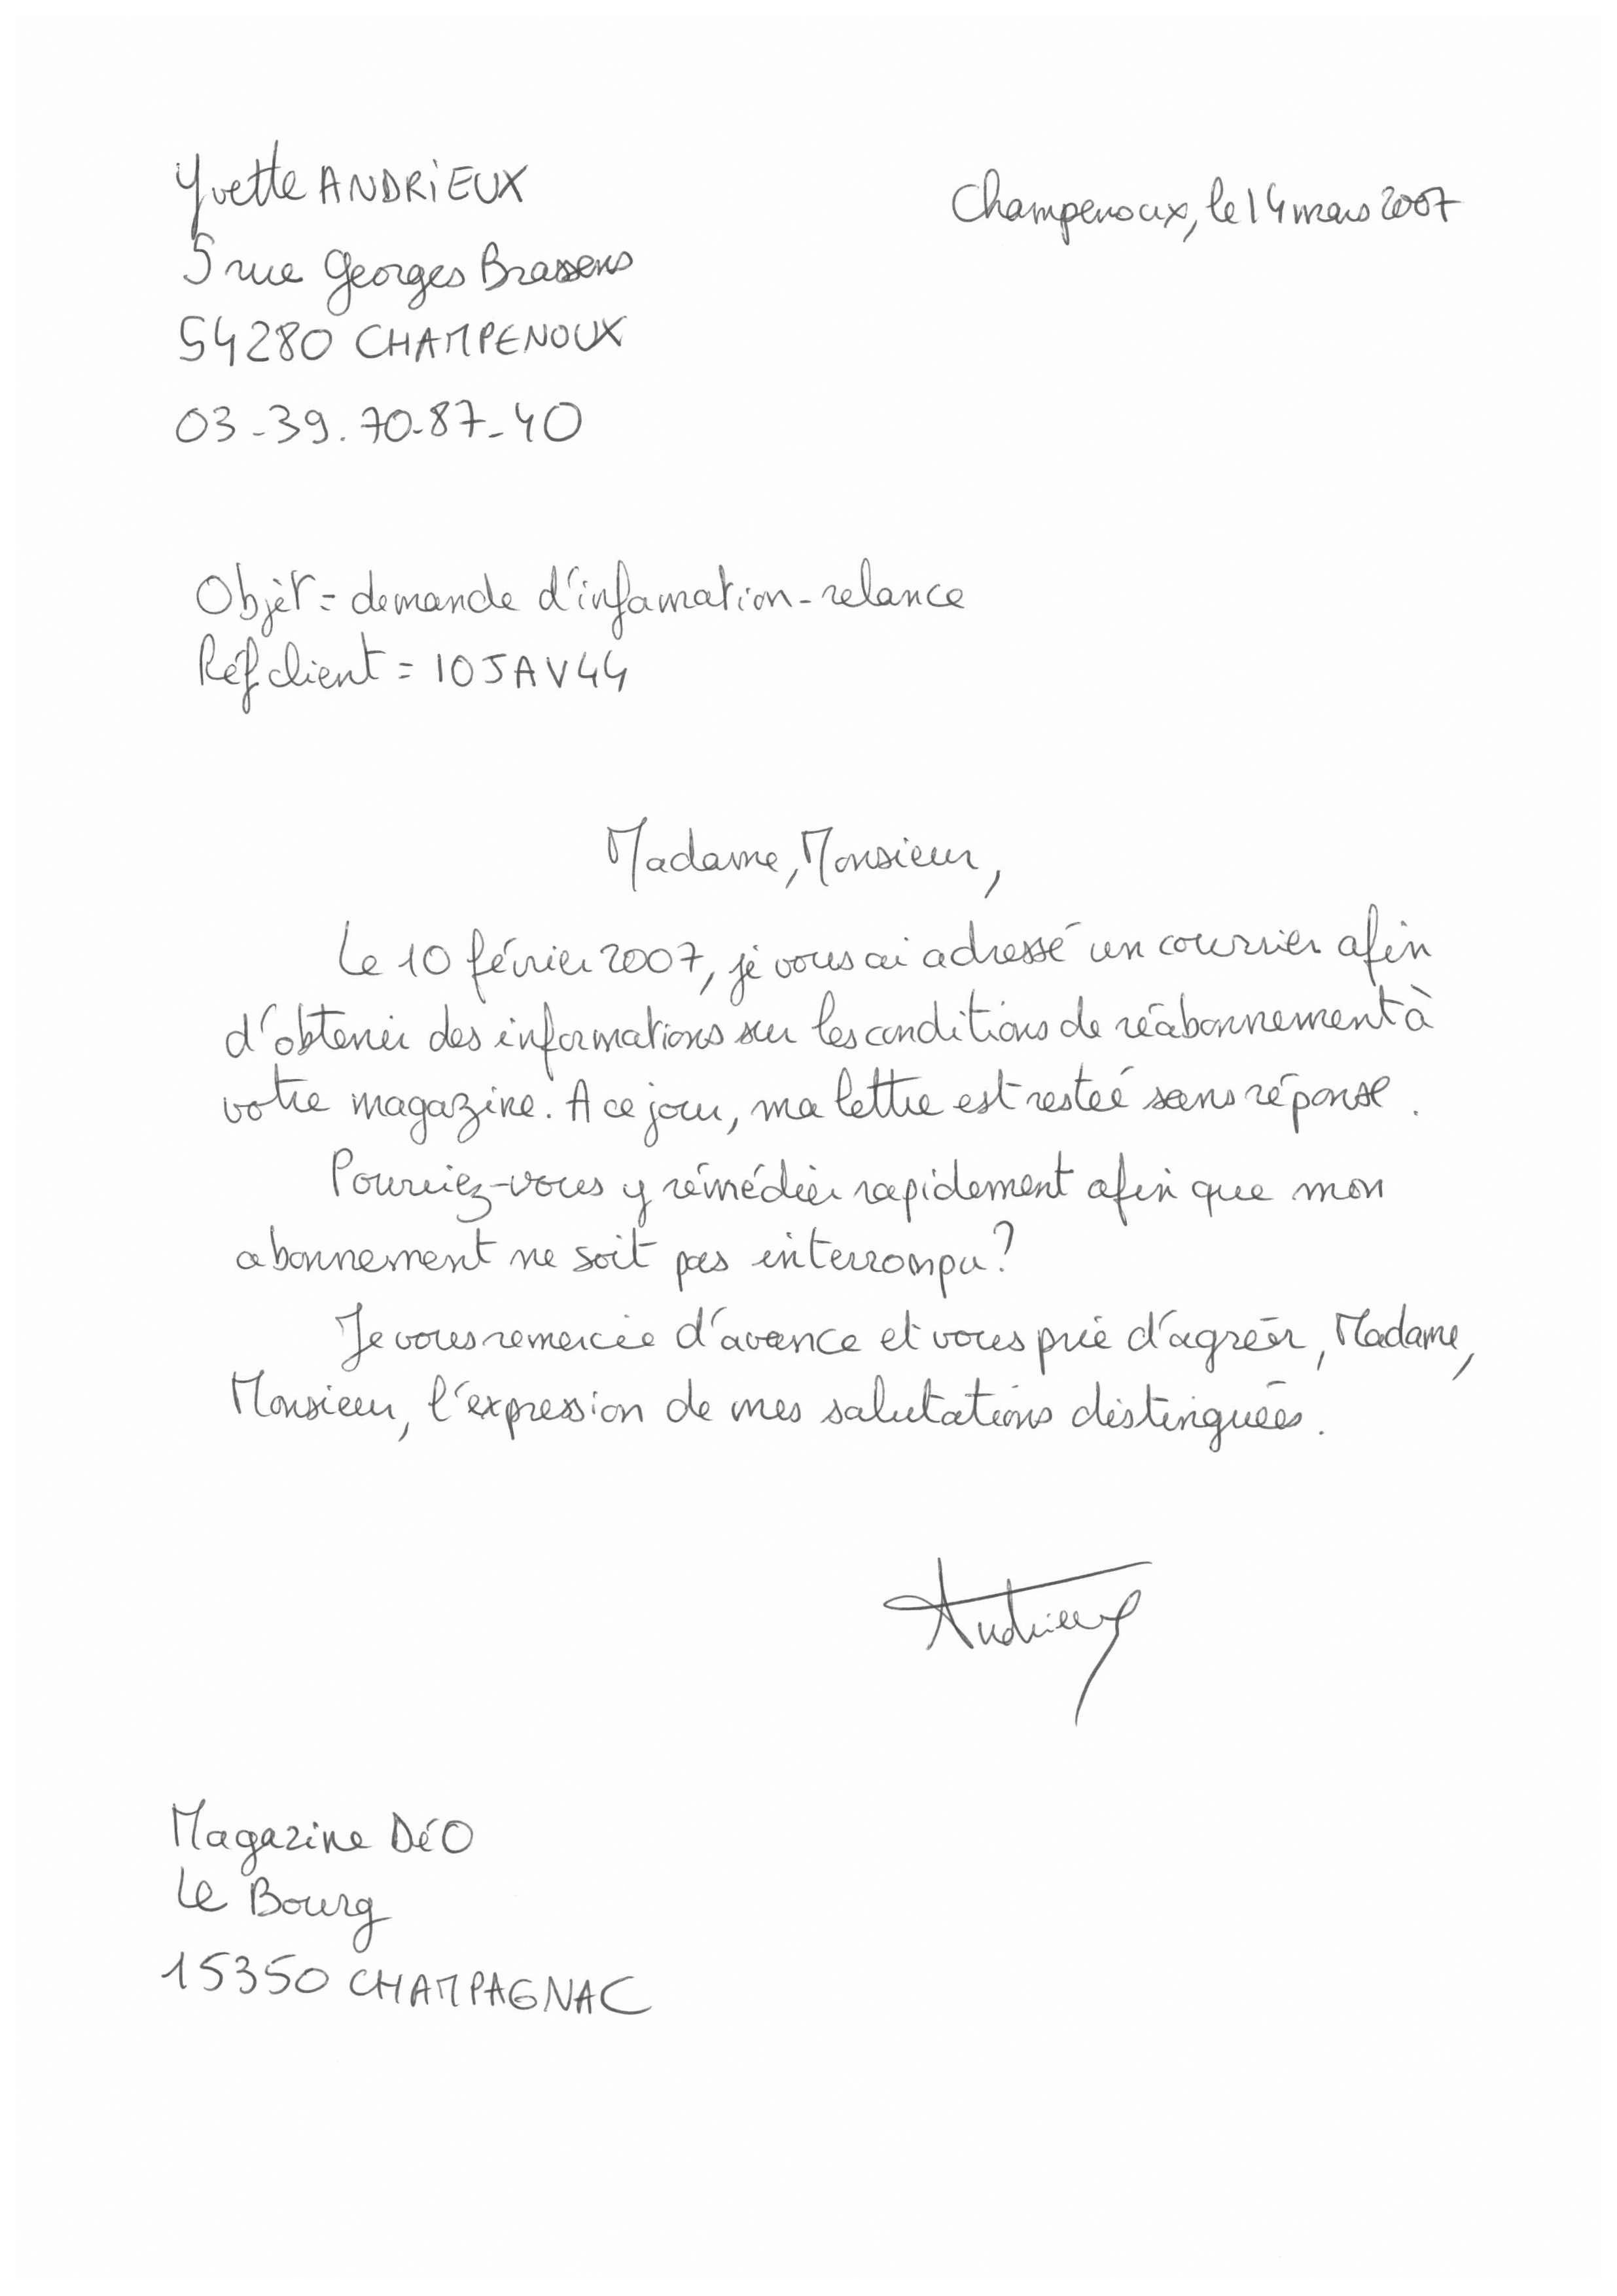 Yvette ANDRIEUX
Champenoux, le 14 mars 2007
5 rue Georges Brassens
54280 CHAMPENOUX
03-39.70-87-40
Objèt = demande d'information - relance
Réf client = 10JAV44
Madame, Monsieur,
Le 10 février 2007, je vous ai adressé un courrier afin
d'obtenir des informations sur les conditions de réabonnement à
votre magazine. A ce jour, ma lettre est restée sans réponse.
Pourriez-vous y rémédier rapidement afin que mon
abonnement ne soit pas interrompu?
Je vous remercie d'avance et vous prie d'agréer, Madame,
Monsieur, l'expression de mes salutations distinguées.
Andrieux
Magazine DéO
Le Bourg
15350 CHAMPAGNAC